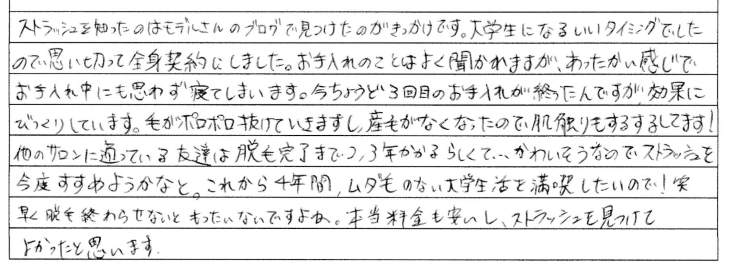 ストラッシュを知ったのはモデルさんのブログで見つけたのがきっかけです。大学生になるしいいタイミングでした
ので思い切って全身契約にしました。お手入れのことはよく聞かれますが、あったかい感じで
お手入れ中にも思わず寝てしまいます。今ちょうど3回目のお手入れが終ったんですが、効果に
びっくりしています。毛がポロポロ抜けていきますし、産毛がなくなったので肌触りもするするしてます!
他のサロンに通っている友達は脱毛完了まで2,3年かかるらしくて...かわいそうなのでストラッシュを
今度すすめようかなと。これから4年間、ムダ毛のない大学生活を満喫したいので!
早く脱毛終わらせないともったいないですよね。本当料金も安いし、ストラッシュを見つけて
よかったと思います.